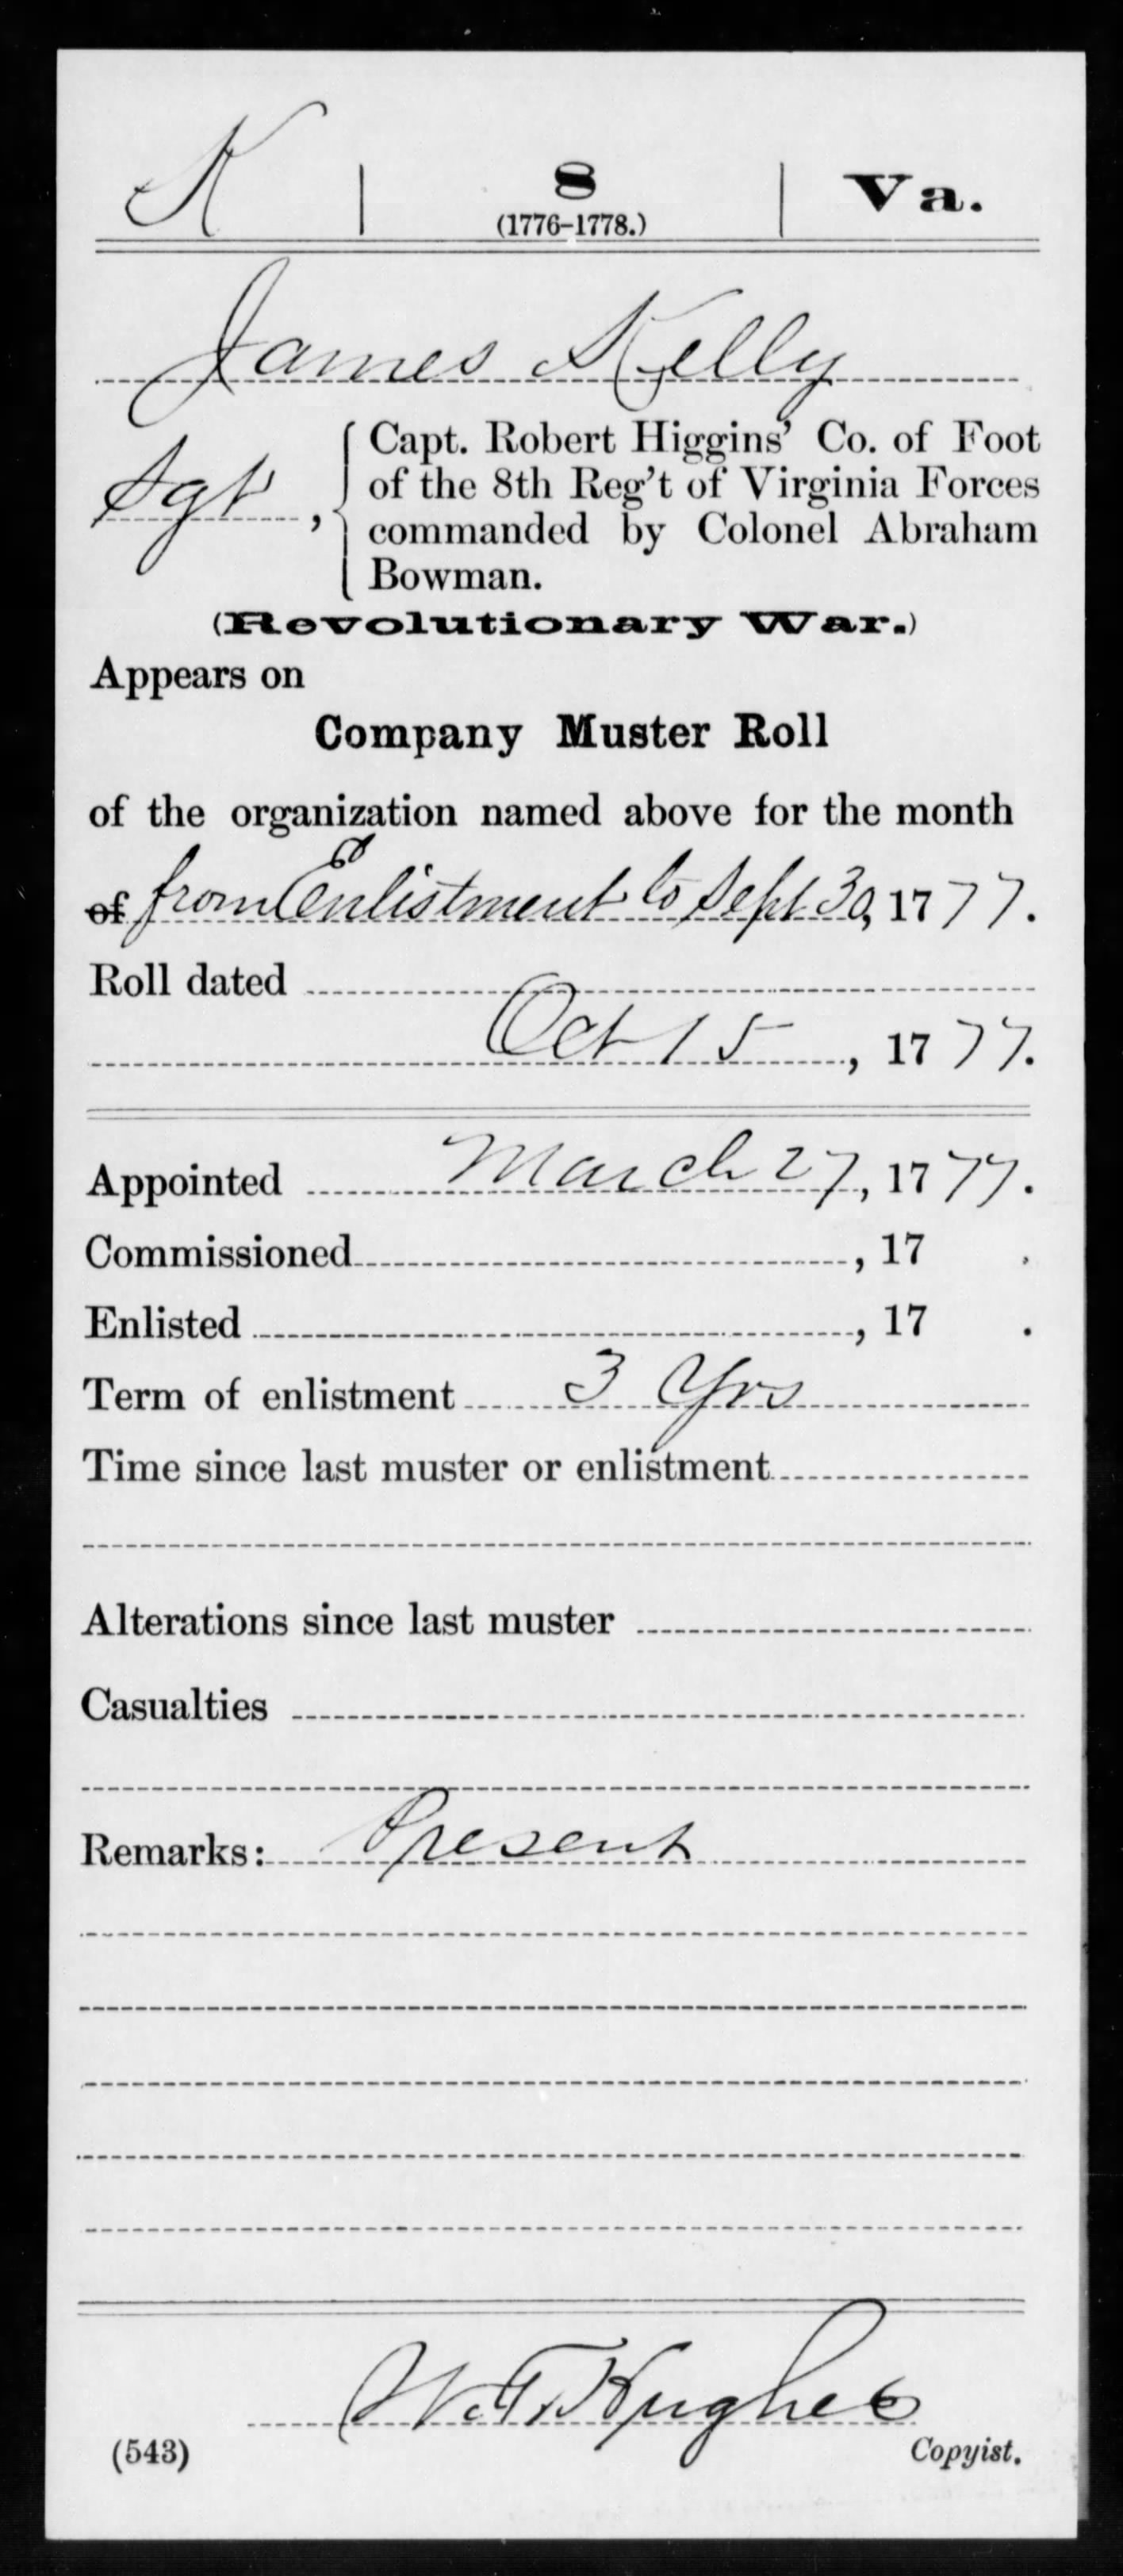 K | 8 | Va.
(1776–1778.)
James Kelly
Sgt, { Capt. Robert Higgins' Co. of Foot
of the 8th Reg't of Virginia Forces
commanded by Colonel Abraham
Bowman.
(Revolutionary War.)
Appears on
Company Muster Roll
of the organization named above for the month
of from Enlistment to Sept 30, 1777.
Roll dated
Oct 15, 1777.
Appointed March 27, 1777.
Commissioned , 17 .
Enlisted , 17 .
Term of enlistment 3 Yrs
Time since last muster or enlistment
Alterations since last muster
Casualties
Remarks: Present
W. T. Hughes
(543) Copyist.